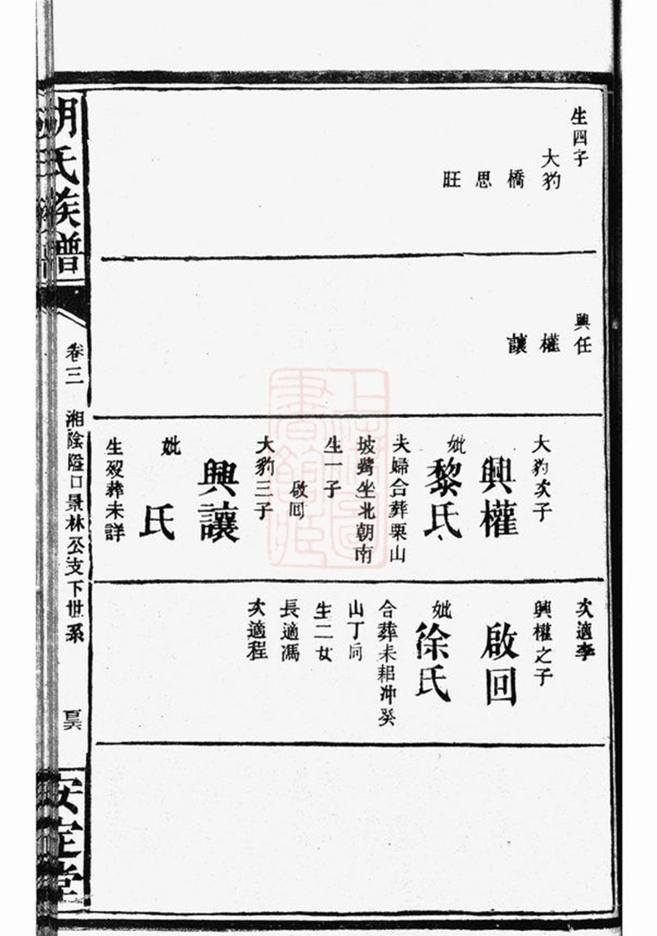 生四子
大豹
橋
思
旺
興任
權
讓
大豹次子
興權
妣
黎氏
夫婦合葬栗山
坡嘴坐北朝南
生一子
啟回
大豹三子
興讓
妣
氏
生歿葬未詳
次適李
興權之子
啟回
妣
徐氏
合葬未耜冲癸
山丁向
生二女
長適馮
次適程
胡氏族譜
卷三
湘陰隘口景林公支下世系
安定堂